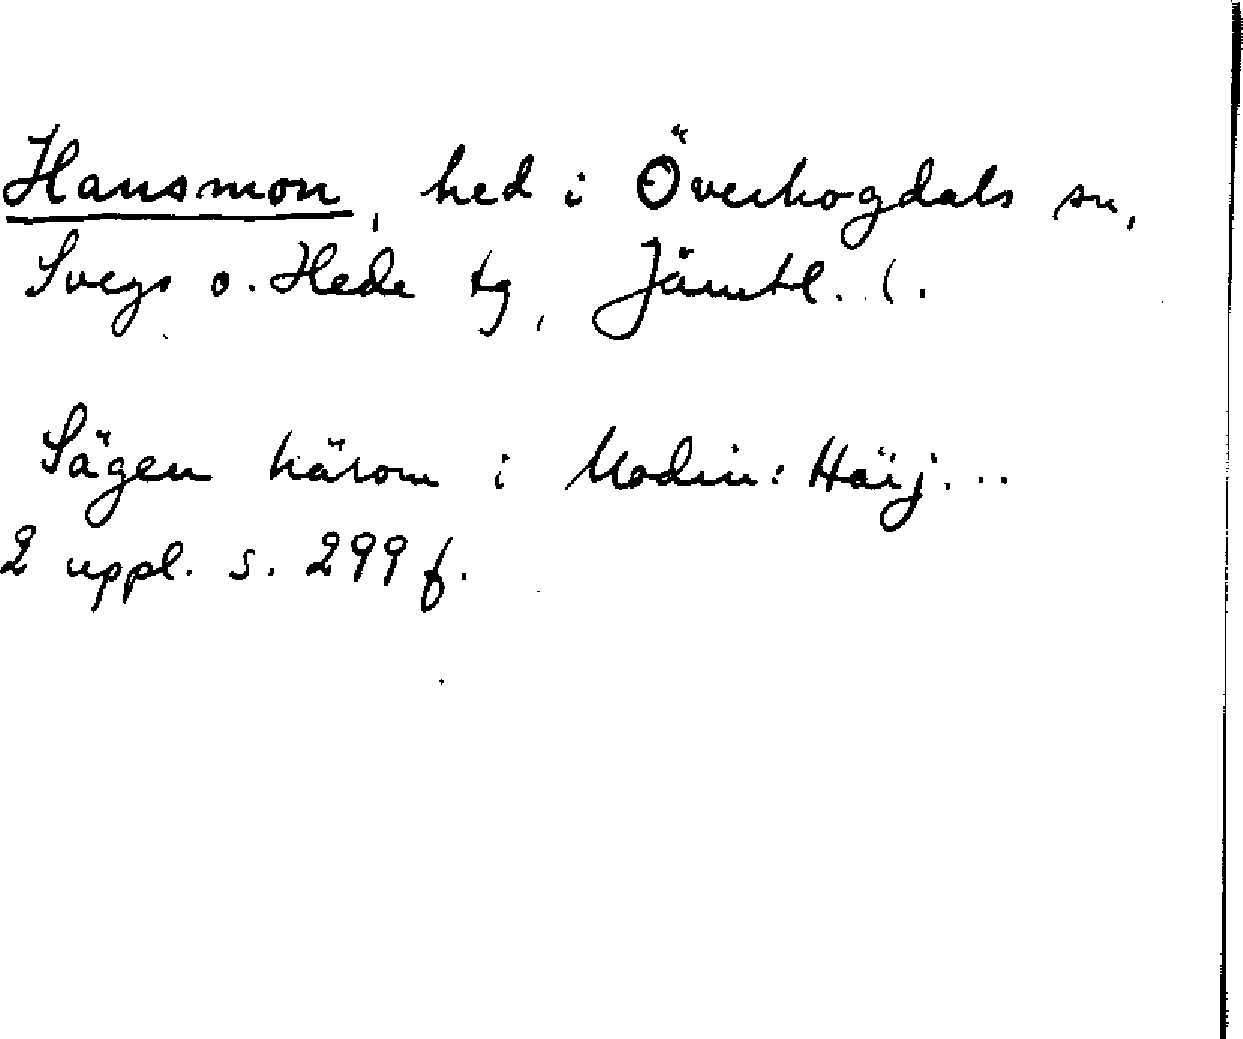 Hansmon, hed i Överhogdals sn,
Svegs o. Hede tg, Jämtl. l.
Sägen härom i Modin: Härj...
2 uppl. s. 299 f.